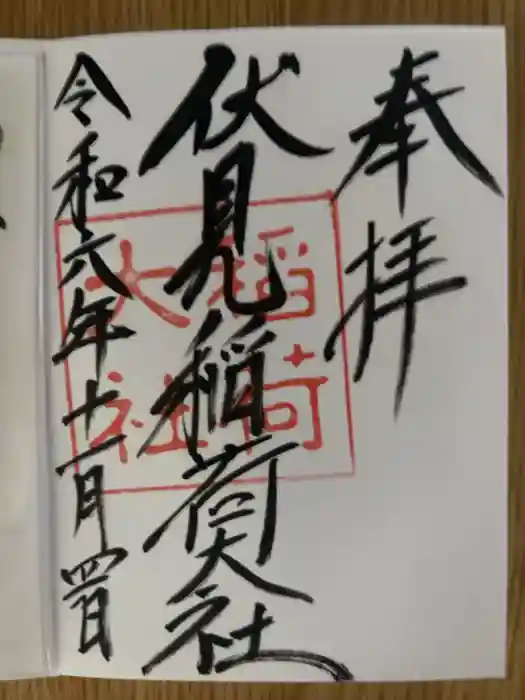 奉拝
伏見稲荷大社
稲荷
大社
令和六年十一月四日